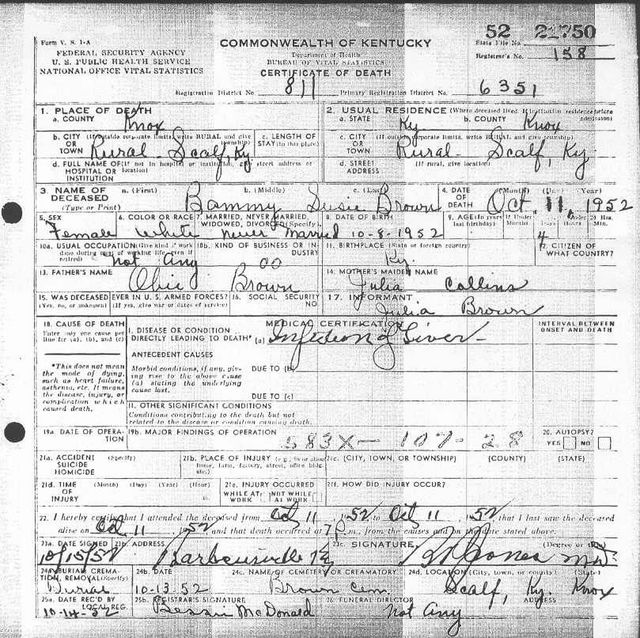 52 21750
Form V. S. 1-A
FEDERAL SECURITY AGENCY
U. S. PUBLIC HEALTH SERVICE
NATIONAL OFFICE VITAL STATISTICS
COMMONWEALTH OF KENTUCKY
Department of Health
BUREAU OF VITAL STATISTICS
CERTIFICATE OF DEATH
State File No.
Registrar's No. 158
Registration District No. 811 Primary Registration District No. 6351
1. PLACE OF DEATH
a. COUNTY Knox
2. USUAL RESIDENCE (Where deceased lived. If institution residence before admission)
a. STATE Ky b. COUNTY Knox
b. CITY OR TOWN (If outside corporate limits, write RURAL and give township) Rural Scalf, Ky
c. LENGTH OF STAY (in this place)
c. CITY OR TOWN (If outside corporate limits, write RURAL and give township) Rural - Scalf, Ky.
d. FULL NAME OF HOSPITAL OR INSTITUTION (If not in hospital or institution, give street address or location)
d. STREET ADDRESS (If rural, give location)
3. NAME OF DECEASED (Type or Print) a. (First) b. (Middle) c. (Last)
Bammy Susie Brown
4. DATE OF DEATH (Month) (Day) (Year) Oct. 11, 1952
5. SEX Female
6. COLOR OR RACE White
7. MARRIED, NEVER MARRIED, WIDOWED, DIVORCED (Specify) never married
8. DATE OF BIRTH 10-8-1952
9. AGE (In years last birthday) 4
10a. USUAL OCCUPATION (Give kind of work done during most of working life, even if retired) not any
10b. KIND OF BUSINESS OR INDUSTRY 00
11. BIRTHPLACE (State or foreign country) Ky.
12. CITIZEN OF WHAT COUNTRY?
13. FATHER'S NAME Obie Brown
14. MOTHER'S MAIDEN NAME Julia Collins
15. WAS DECEASED EVER IN U. S. ARMED FORCES? (Yes, no, or unknown) (If yes, give war or dates of service)
16. SOCIAL SECURITY NO.
17. INFORMANT Julia Brown
18. CAUSE OF DEATH
Enter only one cause per line for (a), (b), and (c)
MEDICAL CERTIFICATION
INTERVAL BETWEEN ONSET AND DEATH
I. DISEASE OR CONDITION DIRECTLY LEADING TO DEATH* (a) Infection of Liver
*This does not mean the mode of dying, such as heart failure, asthenia, etc. It means the disease, injury, or complication which caused death.
ANTECEDENT CAUSES
Morbid conditions, if any, giving rise to the above cause (a) stating the underlying cause last.
DUE TO (b)
DUE TO (c)
II. OTHER SIGNIFICANT CONDITIONS
Conditions contributing to the death but not related to the disease or condition causing death.
19a. DATE OF OPERATION
19b. MAJOR FINDINGS OF OPERATION
583X - 107 - 28
20. AUTOPSY? YES NO
21a. ACCIDENT SUICIDE HOMICIDE (Specify)
21b. PLACE OF INJURY (e.g., in or about home, farm, factory, street, office bldg.)
21c. (CITY, TOWN, OR TOWNSHIP) (COUNTY) (STATE)
21d. TIME OF INJURY (Month) (Day) (Year) (Hour)
21e. INJURY OCCURRED WHILE AT WORK NOT WHILE AT WORK
21f. HOW DID INJURY OCCUR?
22. I hereby certify that I attended the deceased from Oct 11 1952 to Oct 11 1952, that I last saw the deceased
alive on Oct 11 1952 and that death occurred at 7 P m., from the causes and on the date stated above.
23a. DATE SIGNED 10/15/52
23b. ADDRESS Barbourville Ky
23c. SIGNATURE (Degree or title) M.D.
24a. BURIAL, CREMATION, REMOVAL (Specify) Burial
24b. DATE 10-13-52
24c. NAME OF CEMETERY OR CREMATORY Brown Cem.
24d. LOCATION (City, town, or county) (State) Scalf, Ky. Knox
25a. DATE REC'D BY LOCAL REG. 10-14-52
25b. REGISTRAR'S SIGNATURE Bessie McDonald
26. FUNERAL DIRECTOR ADDRESS not any